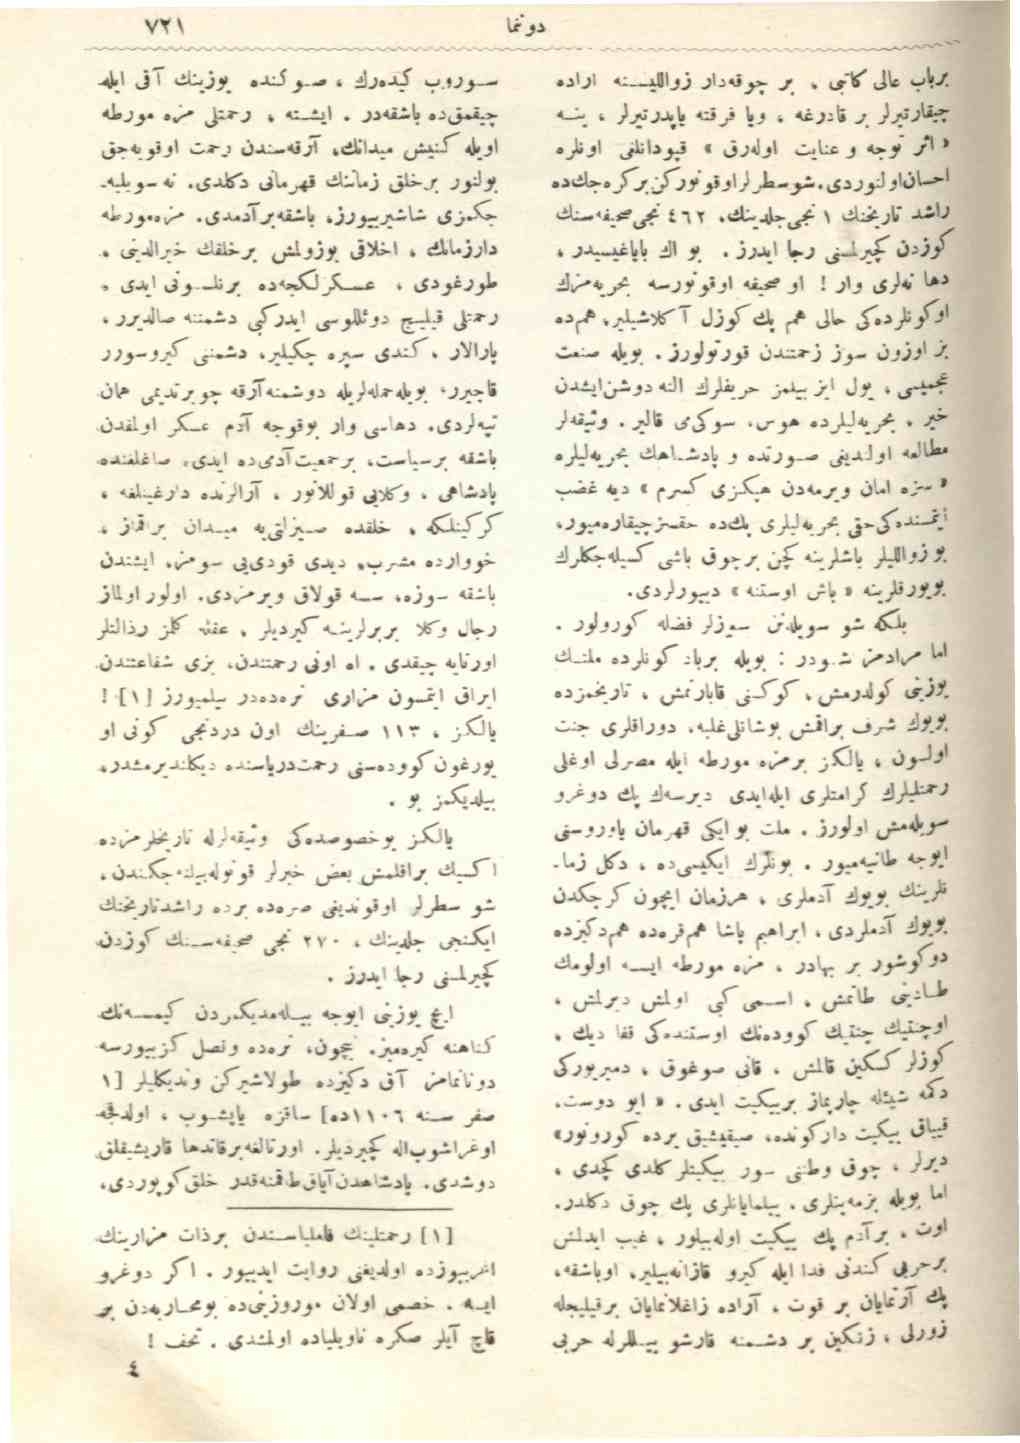 دوننما
٧٢١
برباب عالی کاتبی ، بر چوقه‌دار زواللیسنه اراده
چیقارتیرلر بر قادرغه ، ویا فرقته یاپدرتیرلر ، ینه
« اثر توجه و عنایت اوله‌رق » قپودانلغی اونلره
احسان اولنوردی. شو سطرلر اوقونورکن بر کره جك‌ده
راشد تاریخنك ١ نجی جلدینك، ٤٦٢ نجی صحیفه‌سنك
کوزدن کچیرلمسنی رجا ایدرز . بو اك بایاغیسیدر ،
دها نه‌لری وار ! او صحیفه اوقونورسه بحریه‌مزك
اوکونلرده‌کی حالی هم پك کوزل آکلاشیلیر، هم‌ده
بز اوزون سوز زحمتندن قورتولورز . بویله صنعت
عجمیسی ، یول ایز بیلمز حریفلرك النه دوشن ایشدن
خیر ، بحریه‌لیلرده هوس، سوکی‌می قالیر . وثیقه‌لر
مطالعه اولندیغی صورتده و پادشاهك بحریه‌لیلره
« سزه امان ویرمه‌دن هپکزی کسرم » دیه غضب
ایتمسنده‌کی حقی بحریه‌لیلری پك‌ده حقسز چیقاره‌میور،
بو زواللیلر باشلرینه کچن بر چوق باشی کسیله‌جکلرك
بویورقلرینه « باش اوستنه » دییورلردی.
بلکه شو سویله‌نن سوزلر فضله کورولور .
اما مرادمز شودر : بویله برباد کونلرده ملتك
یوزینی کولدرمش، کوکسنی قابارتمش ، تاریخمزده
بویوك شرف براقمش بوشانلی غلبه، دوراقلری جنت
اولسون ، یالکز بر مزه مورطه ایله مصرلی اوغلی
رحمتلیلرك کرامتلری ایله‌ایدی دیرسه‌ك پك دوغرو
سویله‌مش اولورز . ملت بو ایکی قهرمان یاوروسنی
ایوجه طانیه‌میور . بونلرك ایکیسی‌ده ، دکل زما-
نلرینك بویوك آدملری ، هر زمان ایچون کرچکدن
بویوك آدملردی ، ابراهیم پاشا هم قره‌ده هم دکیزده
دوکوشور بر بهادر ، مزه مورطه ایسه اولومك
طادینی طاتمش ، اسمی کبی اولمش دیرلمش ،
اوچنتیك چنتیك کووده‌نك اوستنده‌کی قفا دیك ،
کوزلر کسکین قالمش ، قانی صوغوق ، دمیر یورکی
دکمه شیئله چارپماز بر ییکیت ایدی . « ایو دوست،
قیباق ییکیت دارکونده، صیقیشیق یرده کورونور»
دیرلر ، چوق وطنی سور ییکیتلر کلدی کچدی ،
اما بویله بزمه‌ینلری . ییلمایانلری پك چوق دکلدر.
اوت ، بر آدم پك ییکیت اوله‌بیلور ، غیب ایدلمش
بر حربی کندنی فدا ایله کیرو قازانه‌بیلیر، او باشقه،
پك آزتمایان بر قوت ، آزاده زاغلانمایان بر قیلیجله
زورلی ، زنکین بر دشمنه قارشو ییللرله حربی
سوروب کیده‌رك ، صوکنده یوزینك آقی ایله
چیقمق‌ده باشقه‌در . ایشته ، رحمتلی مزه مورطه
اویله کنیش میدانك، آرقه‌سندن رحمت اوقونه‌جق
بولنور بر خلق زماننك قهرمانی دکلدی. نه سویلیه-
جکمزی شاشیرییورز، باشقه بر آدمدی. مزه‌مورطه
دارزمانك ، اخلاقی بوزولمش بر خلقك خیرالدینی ،
طورغودی ، عسکرلکجه‌ده بر نلسونی ایدی ،
رحمتلی قیلیچ دوئللوسی ایدر کبی دشمننه صالدیرر ،
یارالار ، کندی سپره چکیلیر، دشمنی کیروسورر
قاچیرر، بویله حمله‌لریله دوشمنه آرقه چویرتدیمی همان
تپه‌لردی. دهاسی وار بو قوجه آدم عسکر اولمقدن
باشقه بر سیاست، بر جمعیت آدمی‌ده ایدی، صاغلغنده
پادشاهی ، وکلایی قوللانور ، آزالرنده دارغینلغه ،
کرکینلکه ، خلقده صیزلتی‌یه میدان براقماز ،
خووارده مشرب، دیدی قودی‌یی سومز، ایشندن
باشقه سوزه، سسه قولاق ویرمزدی. اولور اولماز
رجال وکلا بربرلرینه کیردیلر ، عقله کلمز رذالتلر
اورتایه چیقدی . اه اونی رحمتندن، بزی شفاعتندن
ایراق ایتمسون مزاری نره‌ده‌در بیلمیورز [١] !
یالکز ، ١١٣ صفرینك اون دردنجی کونی او
یورغون کووده‌سنی رحمت دریاسنده دیکلندیرمشدر،
بیلدیکمز بو .
یالکز بو خصوصده‌کی وثیقه‌لرله تاریخلرمزده
اکسیك براقلمش بعض خبرلر قونوله‌بیله‌جکندن ،
شو سطرلر اوقوندیغی صره‌ده برده راشد تاریخنك
ایکنجی جلدینك ، ٢٧٠ نجی صحیفه‌سنك کوزدن
کچیرلمسنی رجا ایدرز .
ایچ یوزینی ایوجه بیله‌مدیکمزدن کیمسه‌نك
کناهنه کیره‌میز. نیچون، نره‌ده ونصل کزییورسه
دونانمامز آق دکیزده طولاشیرکن وندیکلیلر [١
صفر سنه ١١٠٦ده] ساقزه یاپیشوب ، اولدقجه
اوغراشوب‌اله کچیردیلر. اورتالغه بر قات‌دها قاریشیقلق
دوشدی. پادشاهدن آیاق طاقمنه‌قدر خلق کوپوردی،
[١] رحمتلینك فامیلیاسندن بر ذات مزارینك
اغریبوزده اولدیغنی روایت ایدییور . اکر دوغرو
ایسه . خصمی اولان موروزینی‌ده بومحاربه‌دن بر
قاچ آیلر صکره ناوپلیاده اولمشدی . تحف !
٤